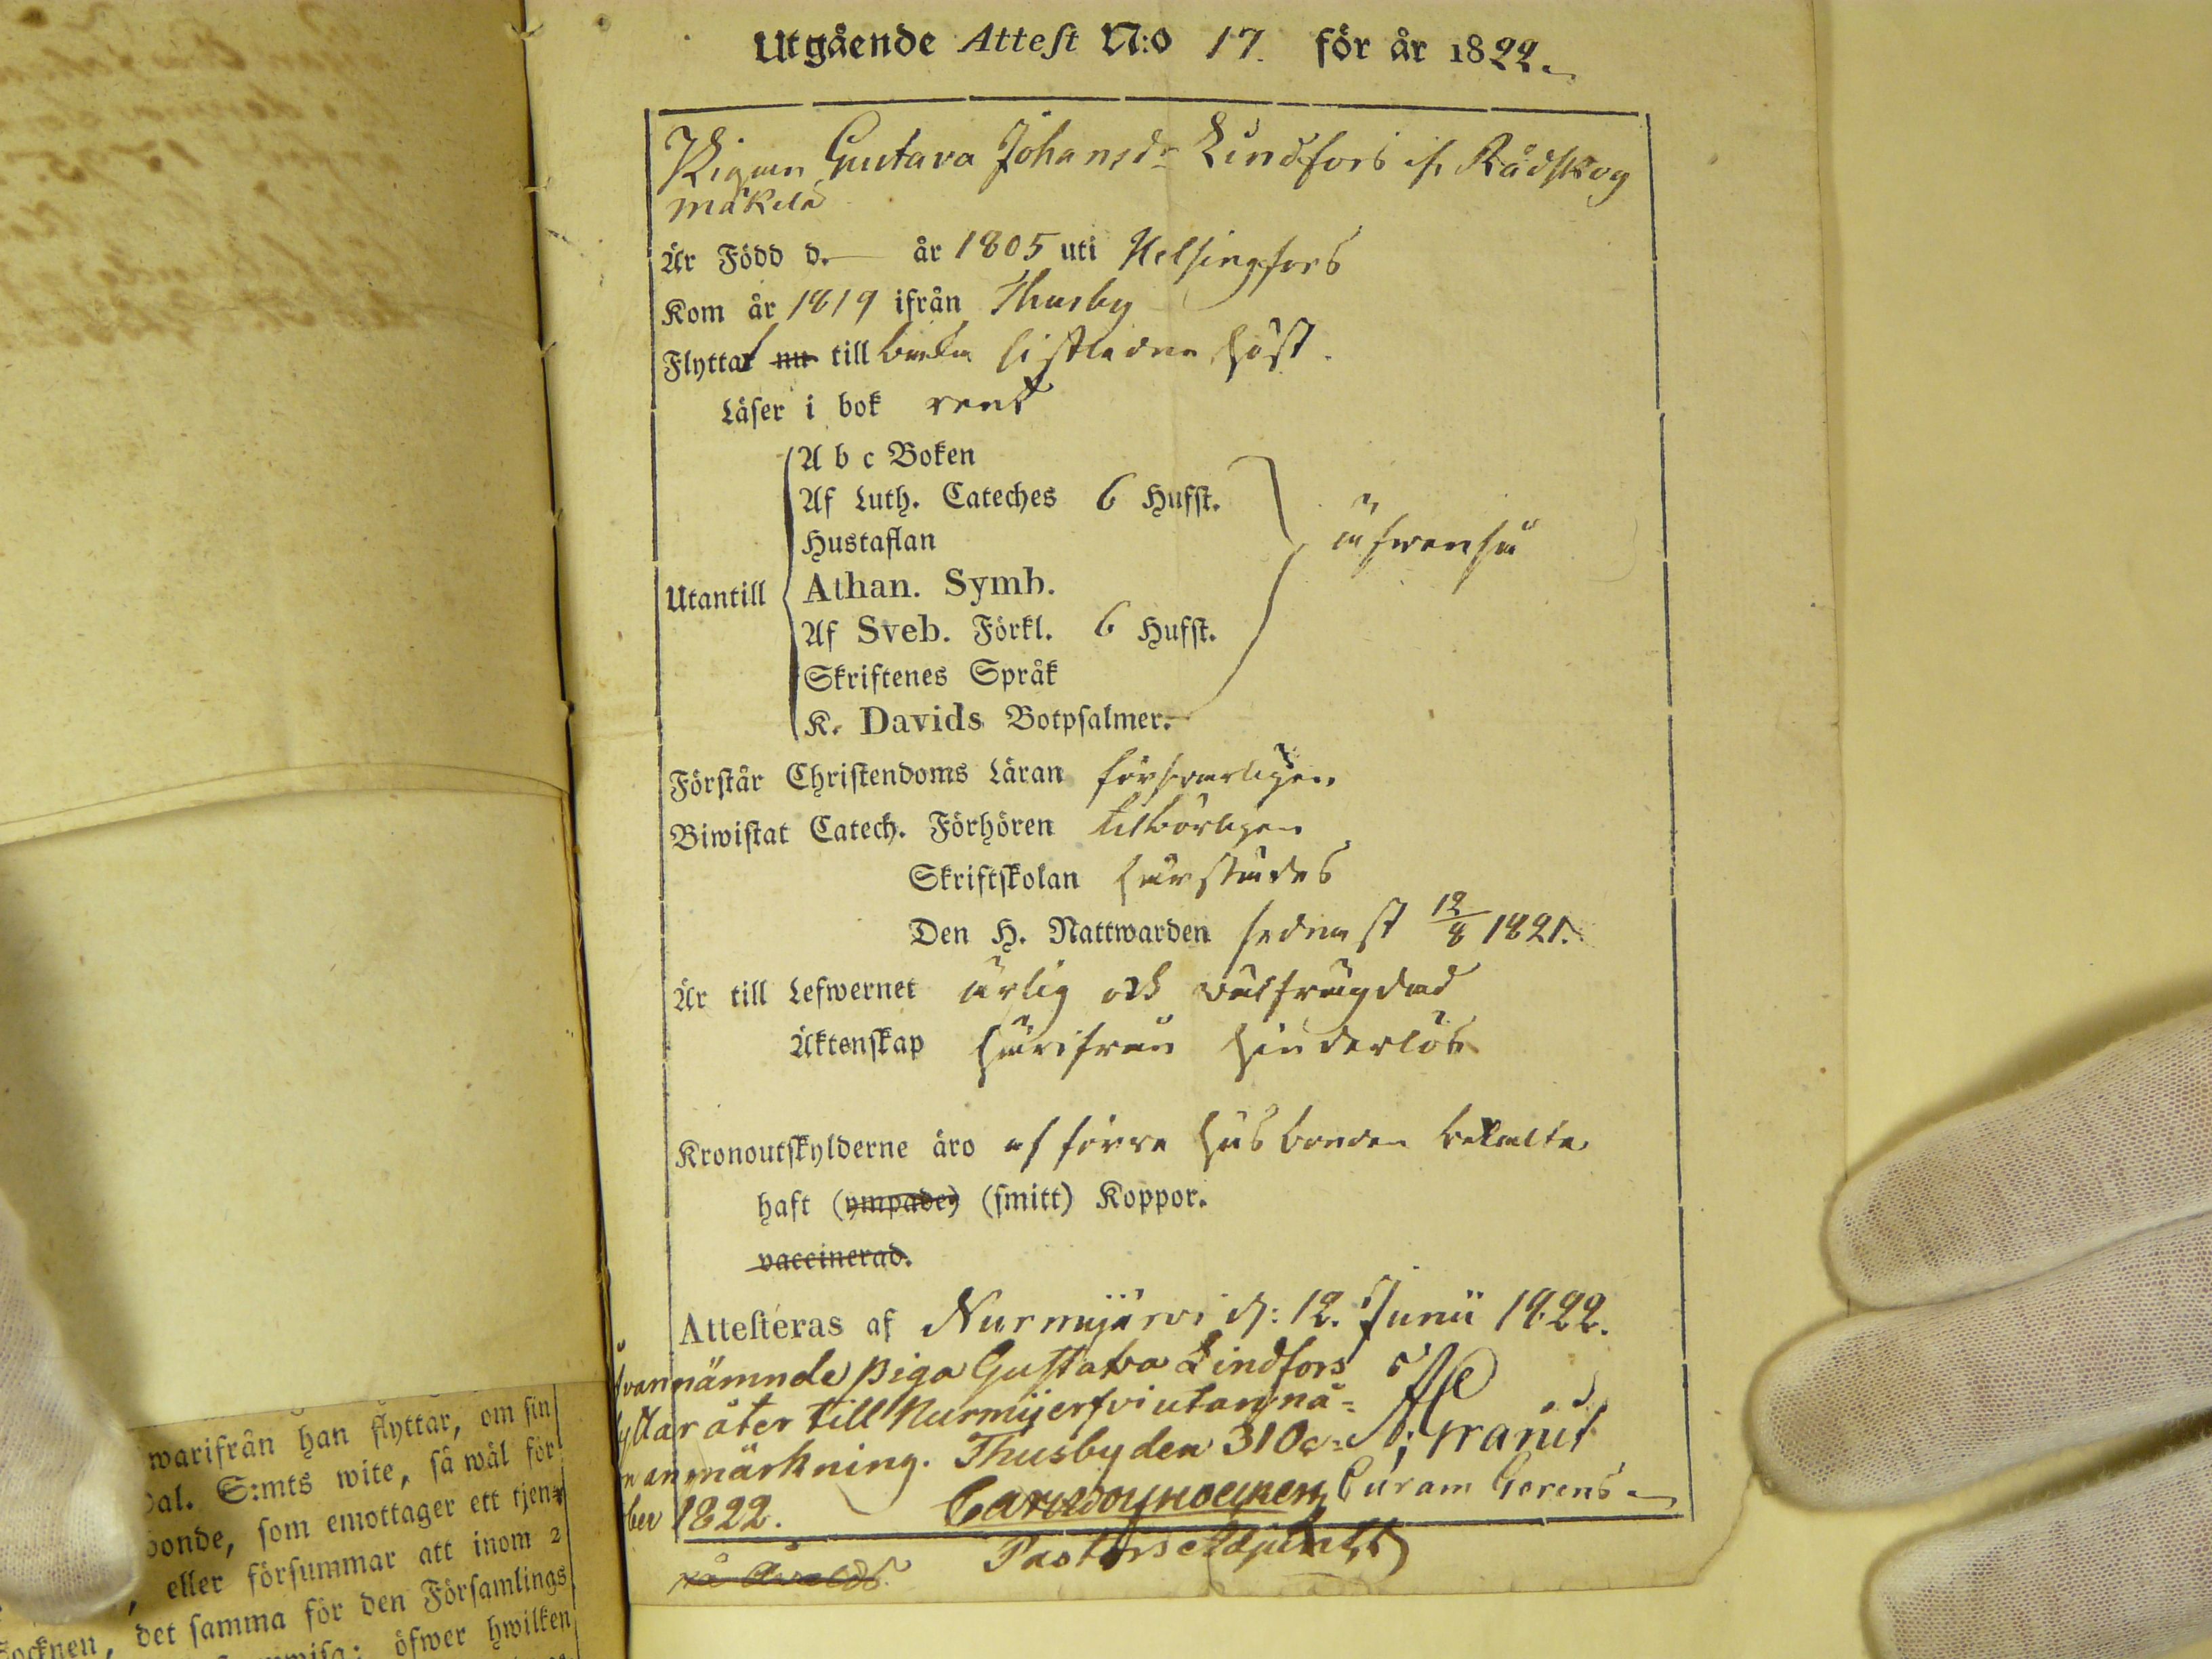 Utgående Attest N:o 17. för år 1822.
Pigan Gustava Johansdr Lindfors ifr. Rådskog
Mäkelä
Är Född d. — år 1805 uti Helsingfors
Kom år 1819 ifrån Thusby
Flyttat nu till baka sistledne höst.
Läser i bok rent
A b c Boken
Af Luth. Cateches 6 Hufst.
Hustaflan
Utantill Athan. Symb.
Af Sveb. Förkl. 6 Hufst.
Skriftenes Språk
K. Davids Botpsalmer.
Förstår Christendoms Läran försvarligen
Biwistat Catech. Förhören tilbörligen
Skriftskolan härstädes
Den H. Nattwarden sednast 12/8 1821.
Är till Lefwernet ärlig och välfrägdad
Äktenskap härifrån hinderlös
Kronoutskylderne äro af förra husbonden betalta
haft (ympade) (smitt) Koppor.
vaccinerad.
Attesteras af Nurmijärvi d: 12. Junii 1822.
vannämnde piga Gustava Lindfors
yttar åter till Nurmijerfvi utan nå-
n anmärkning. Thusby den 31 Oc-
ber 1822.
Curam Gerens
Pastors Adjunct
warifrån han flyttar, om sin
Dal. S:mts wite, så wäl för
bonde, som emottager ett tjen-
, eller försummar att inom 2
Socknen, det samma för den Församlings
öfwer hwilken